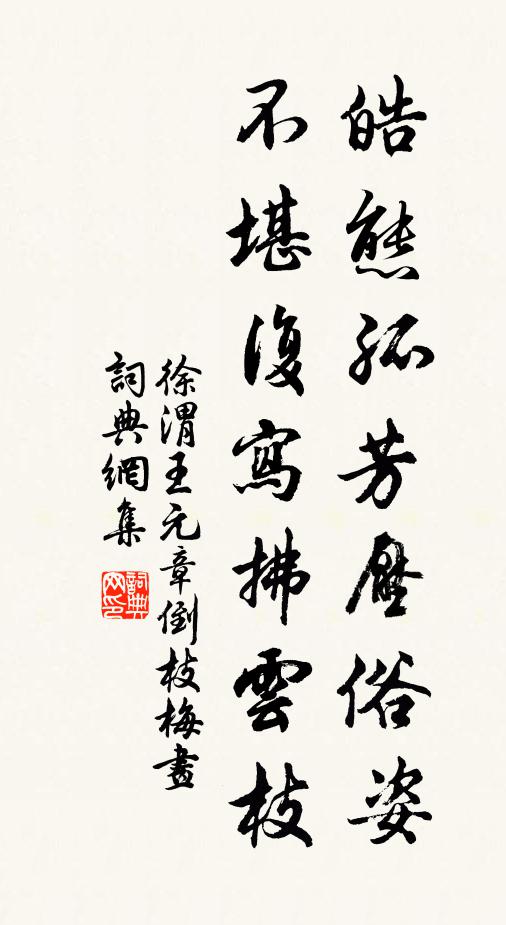 皓態孤芳壓俗姿
不堪復寫拂雲枝
徐渭王元章倒枝梅畫
詞典網集
詞典网印